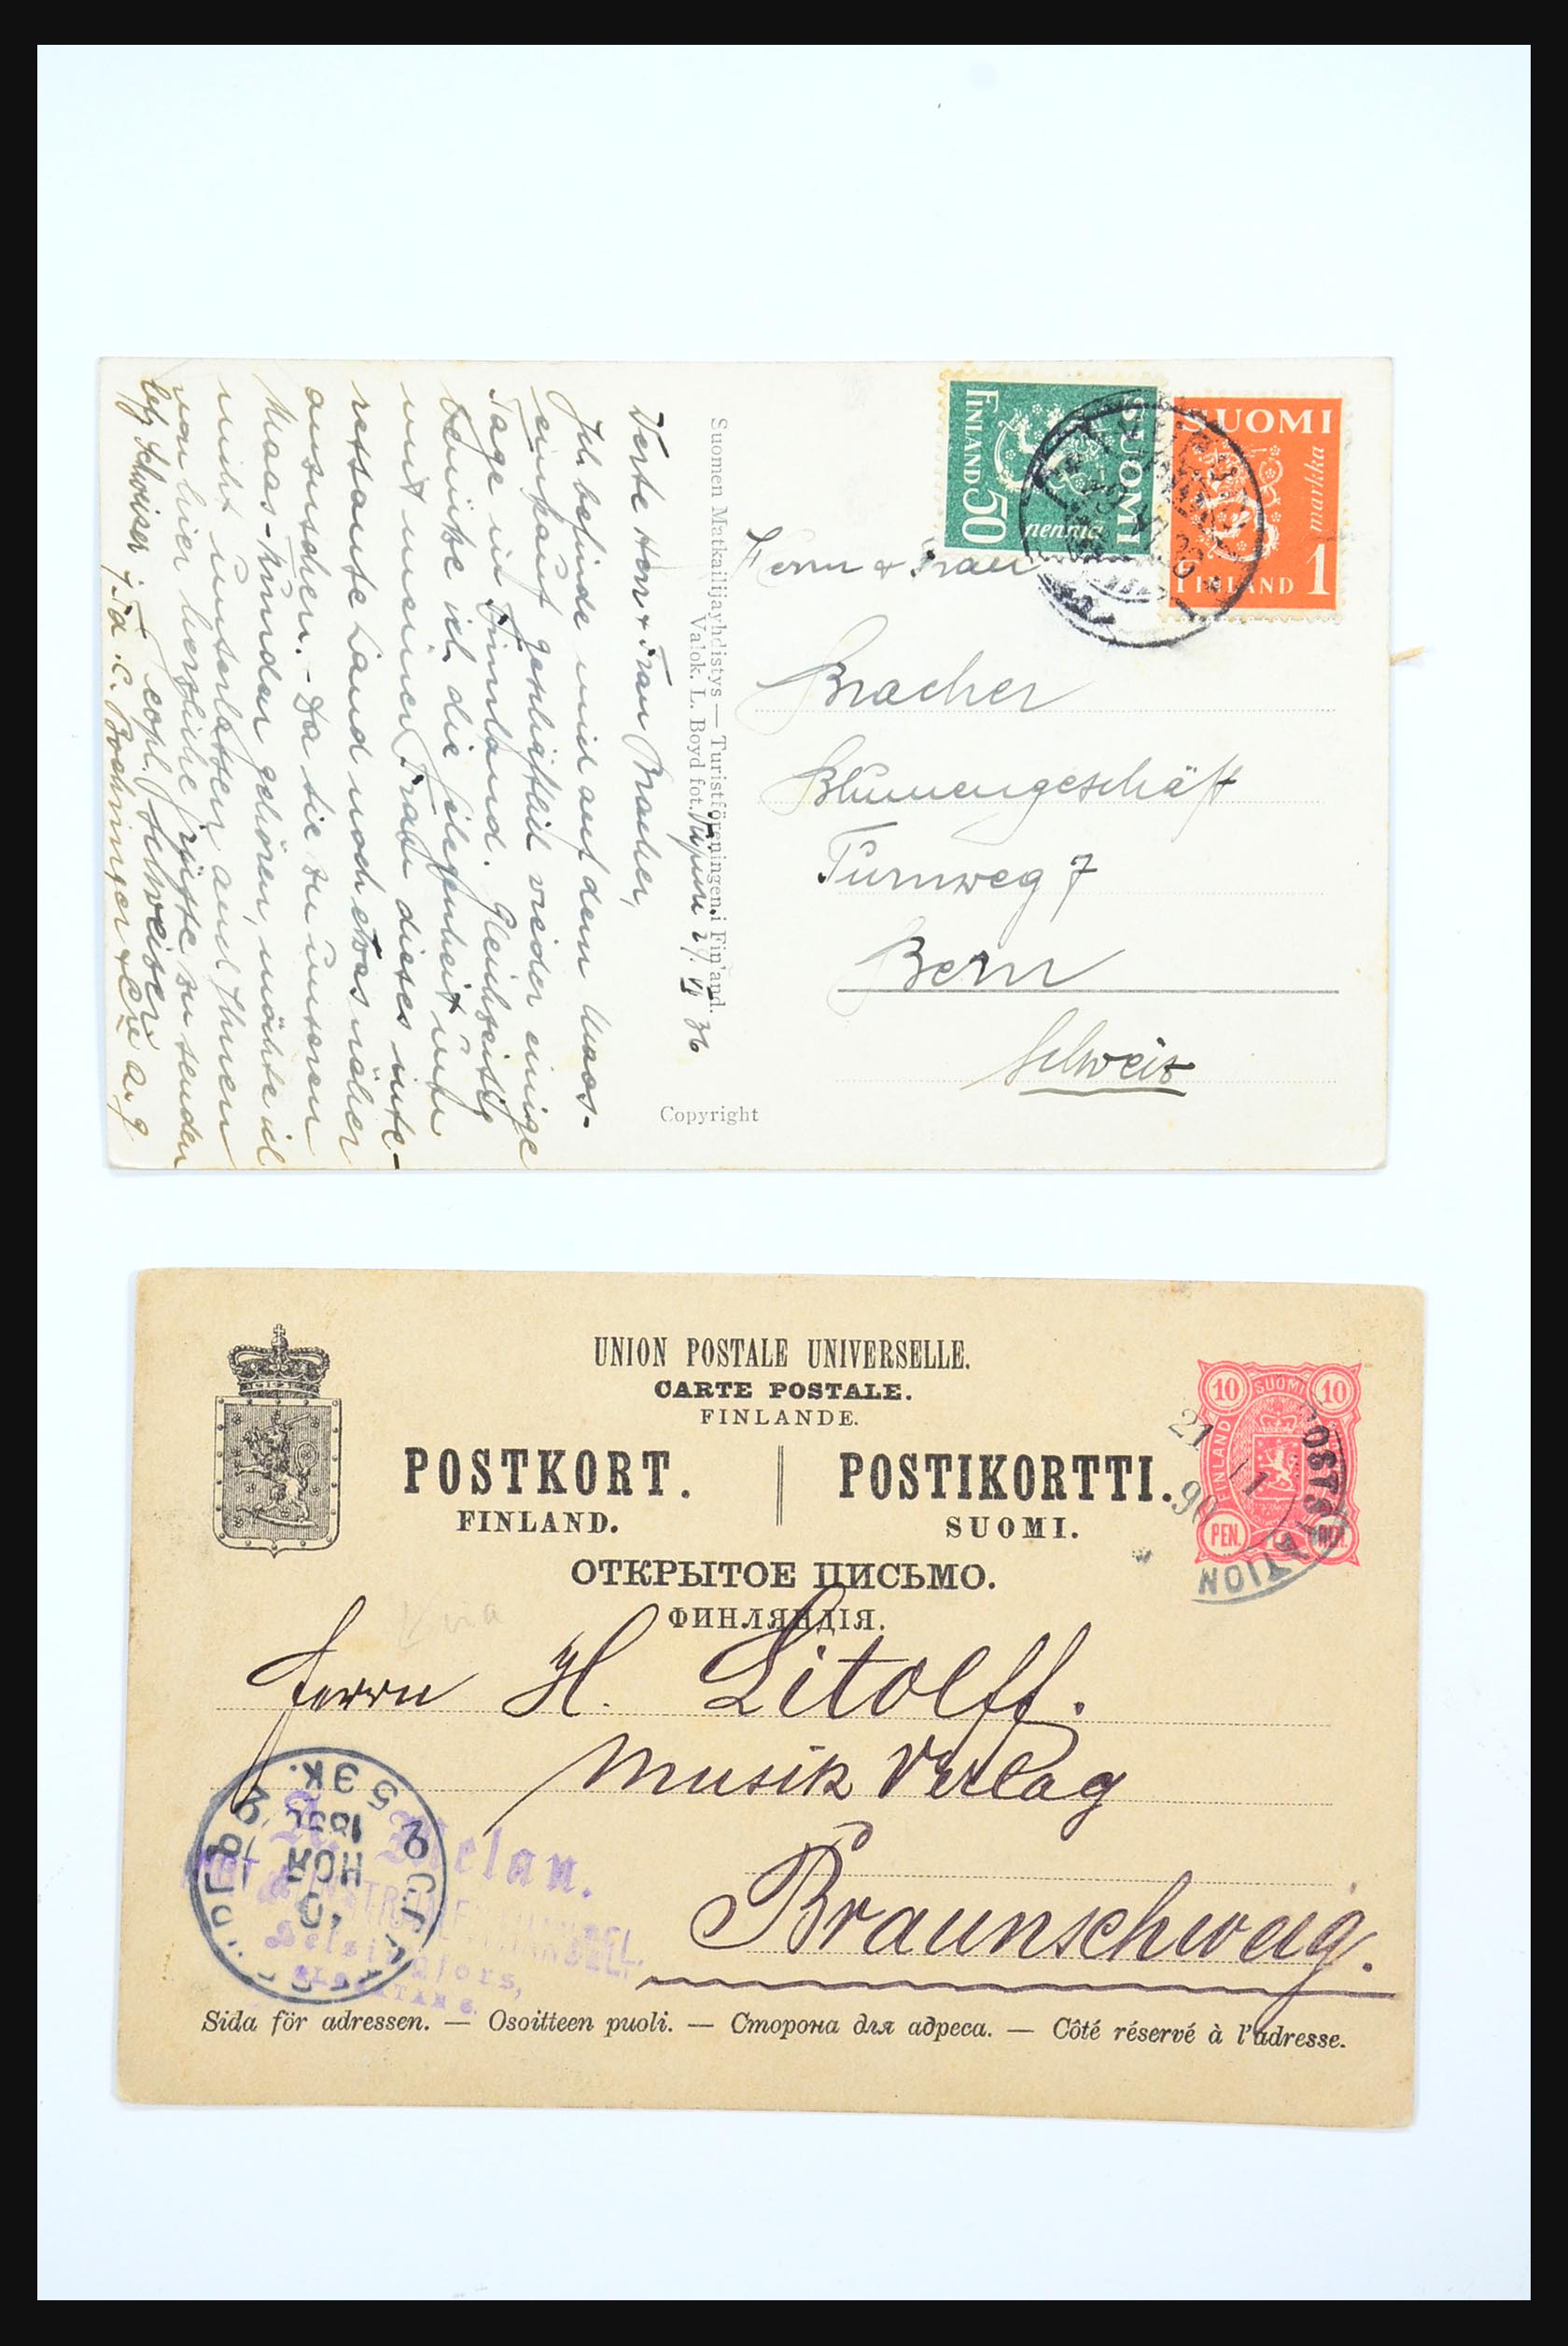 SUOMI
FINLAND 50
penniä
SUOMI
markka
FINLAND 1
Herrn & Frau
Bracher
Blumengeschäft
Turnweg 7
Bern
Schweiz
Suomen Matkailijayhdistys — Turistföreningen i Finland.
Valok. L. Boyd fot.
VI 36
Copyright
Werte Herr & Frau Bracher,
Ich befinde mich auf dem Moos-
einkauf wieder einige
Tage in Finnland. Gleichzeitig
benütze ich die Gelegenheit
mit meiner Frau dieses inte-
ressante Land noch etwas näher
anzusehen. - Da Sie zu unseren
Moos-Kunden gehören, möchte ich
nicht unterlassen auch Ihnen
von hier herzliche Grüsse zu senden
Schweizer
Schweizer i. Fa. C. Bochinger & Cie A.G
UNION POSTALE UNIVERSELLE.
CARTE POSTALE.
FINLANDE.
POSTKORT. POSTIKORTTI.
FINLAND. SUOMI.
ОТКРЫТОЕ ПИСЬМО.
ФИНЛЯНДІЯ.
10 SUOMI 10
FINLAND
PEN.
21
11
90
POSTSTATION
via
Herrn H. Litolff.
Musik Verlag
Braunschweig.
5 ЭК.
НОЯ
Helsingfors,
Sida för adressen. — Osoitteen puoli. — Сторона для адреса. — Côté réservé à l'adresse.